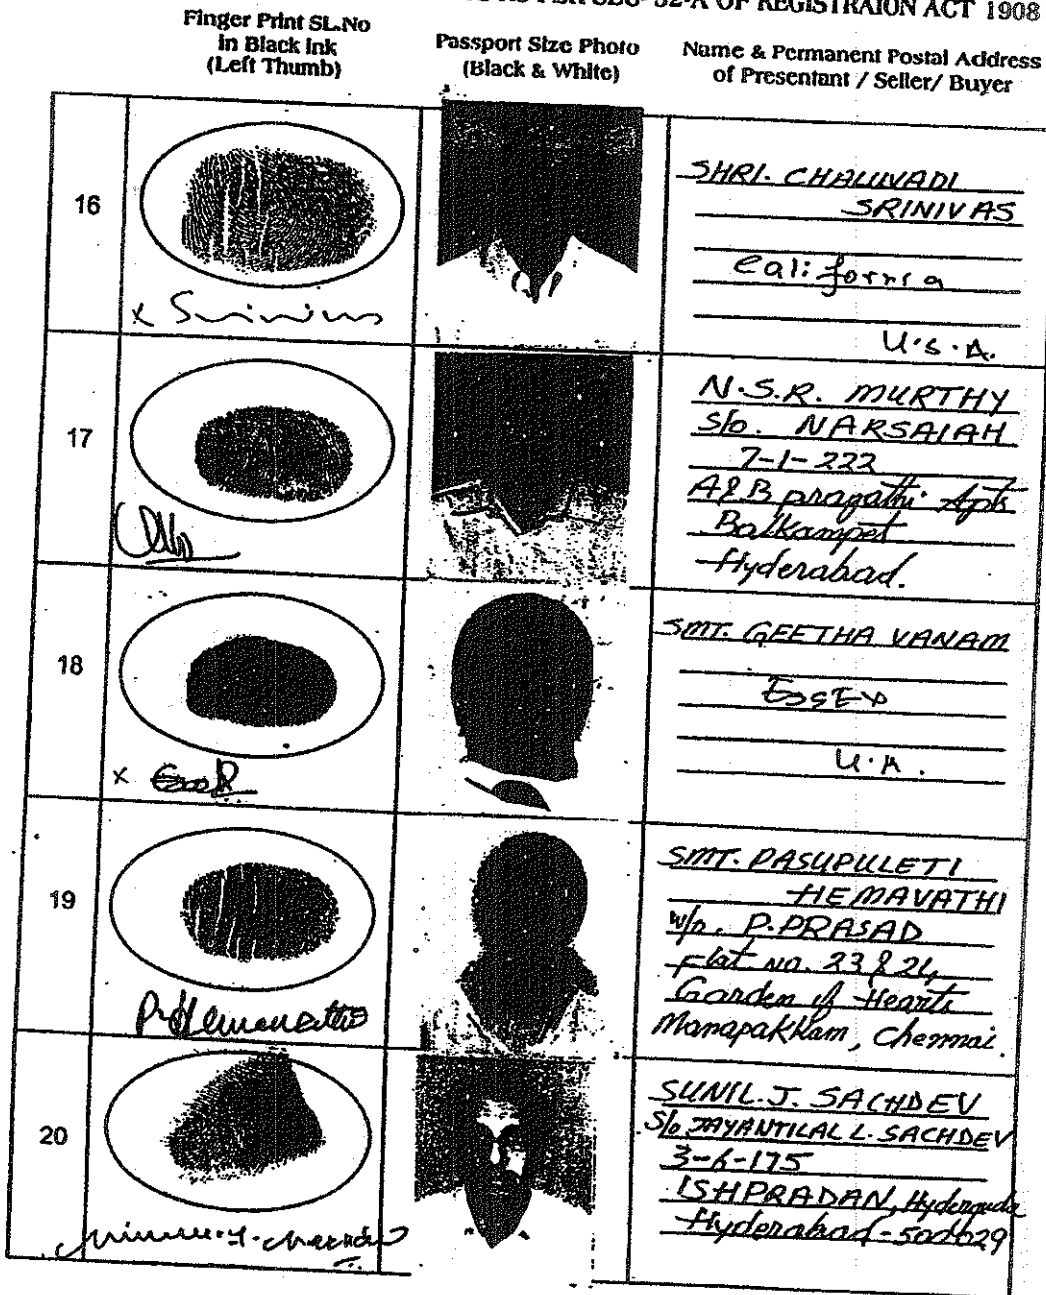 SEC- 32-A OF REGISTRAION ACT 1908
Finger Print SL.No
in Black ink
(Left Thumb)
Passport Size Photo
(Black & White)
Name & Permanent Postal Address
of Presentant / Seller/ Buyer
16
SHRI. CHALUVADI
SRINIVAS
California
U.S.A.
x Srinivas
17
N.S.R. MURTHY
S/o. NARSAIAH
7-1-222
A&B pragathi Apts
Balkampet
Hyderabad.
18
SMT. GEETHA VANAM
EssEx
U.K.
x
19
SMT. PASUPULETI
HEMAVATHI
w/o. P.PRASAD
Flat no. 23 & 24,
Garden of Hearts
Manapakkam, Chennai.
P. Hemavathi
20
SUNIL.J. SACHDEV
S/o JAYANTILAL L. SACHDEV
3-6-175
ISHPRADAN, Hyderguda
Hyderabad-500029